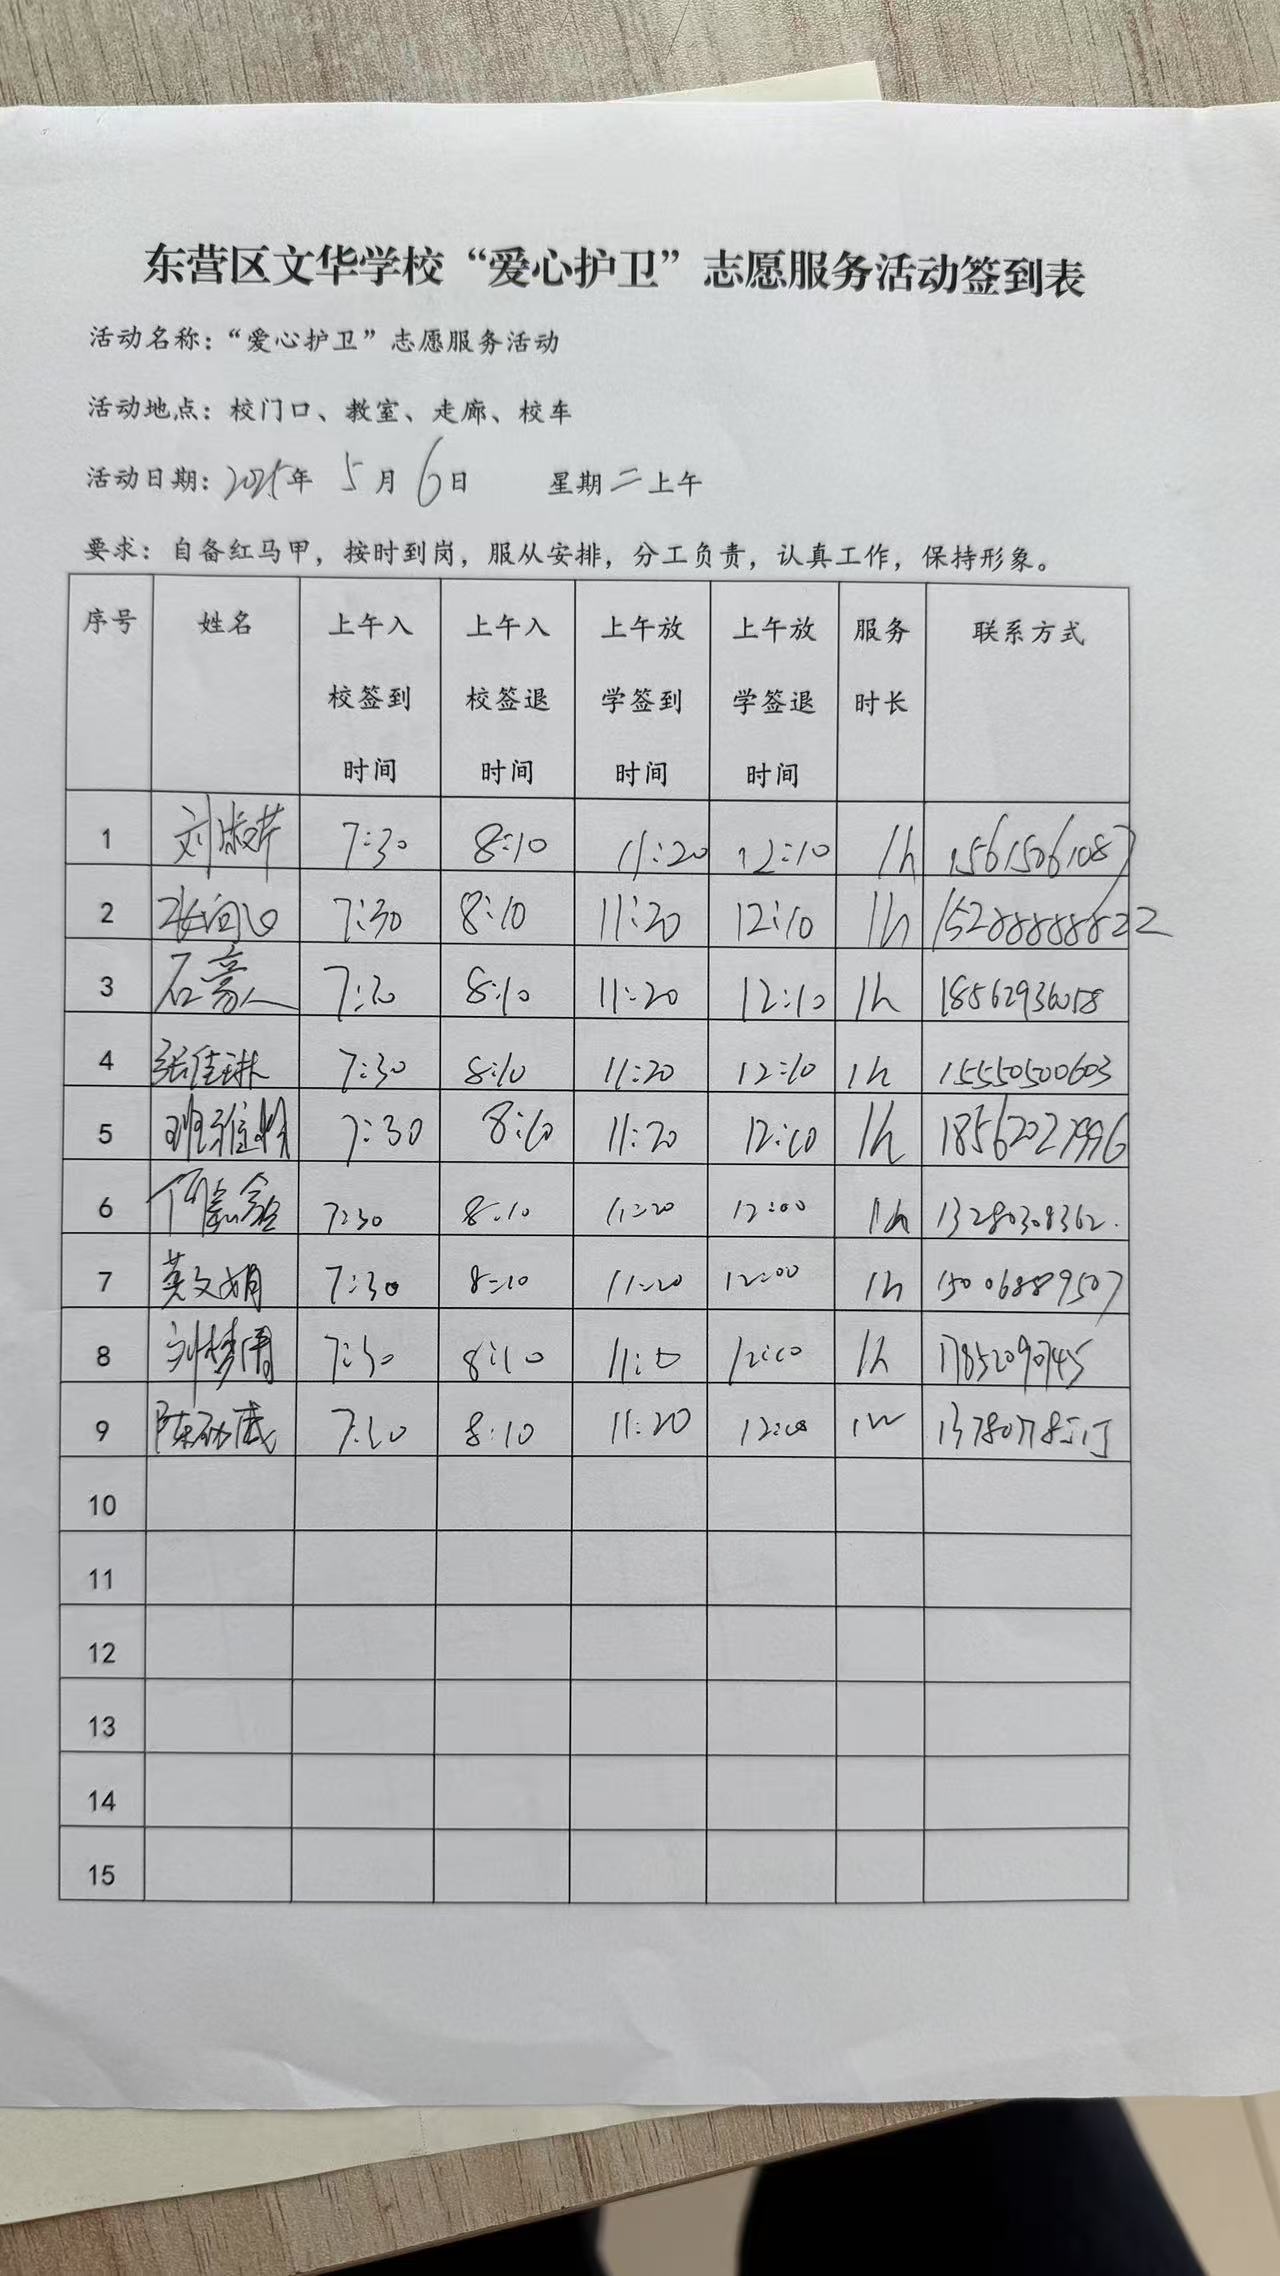 东营区文华学校“爱心护卫”志愿服务活动签到表
活动名称：“爱心护卫”志愿服务活动
活动地点：校门口、教室、走廊、校车
活动日期：2025年 5月 6日 星期二上午
要求：自备红马甲，按时到岗，服从安排，分工负责，认真工作，保持形象。
序号 姓名 上午入校签到时间 上午入校签退时间 上午放学签到时间 上午放学签退时间 服务时长 联系方式
1 刘淑芹 7:30 8:10 11:20 12:10 1h 15615061087
2 7:30 8:10 11:20 12:10 1h 15288888822
3 石豪人 7:20 8:10 11:20 12:10 1h 18562936018
4 张佳琳 7:30 8:10 11:20 12:10 1h 15550500603
5 班雅 7:30 8:10 11:20 12:10 1h 18562027996
6 何 7:30 8:10 11:20 12:00 1h 13280308362.
7 英文娟 7:30 8:10 11:20 12:00 1h 15006889507
8 刘梦 7:30 8:10 12:10 1h 17852090745
9 陈 7:30 8:10 11:20 12:00
10
11
12
13
14
15